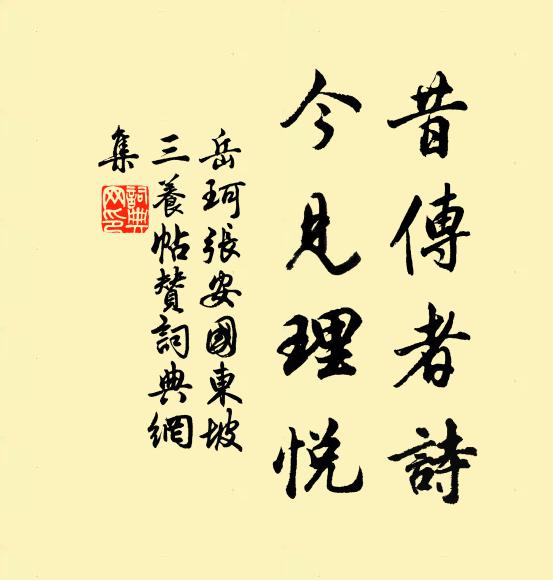 昔傳者詩
今見理悅
岳珂張安國東坡
三養帖贊詞典網
集
詞典網印